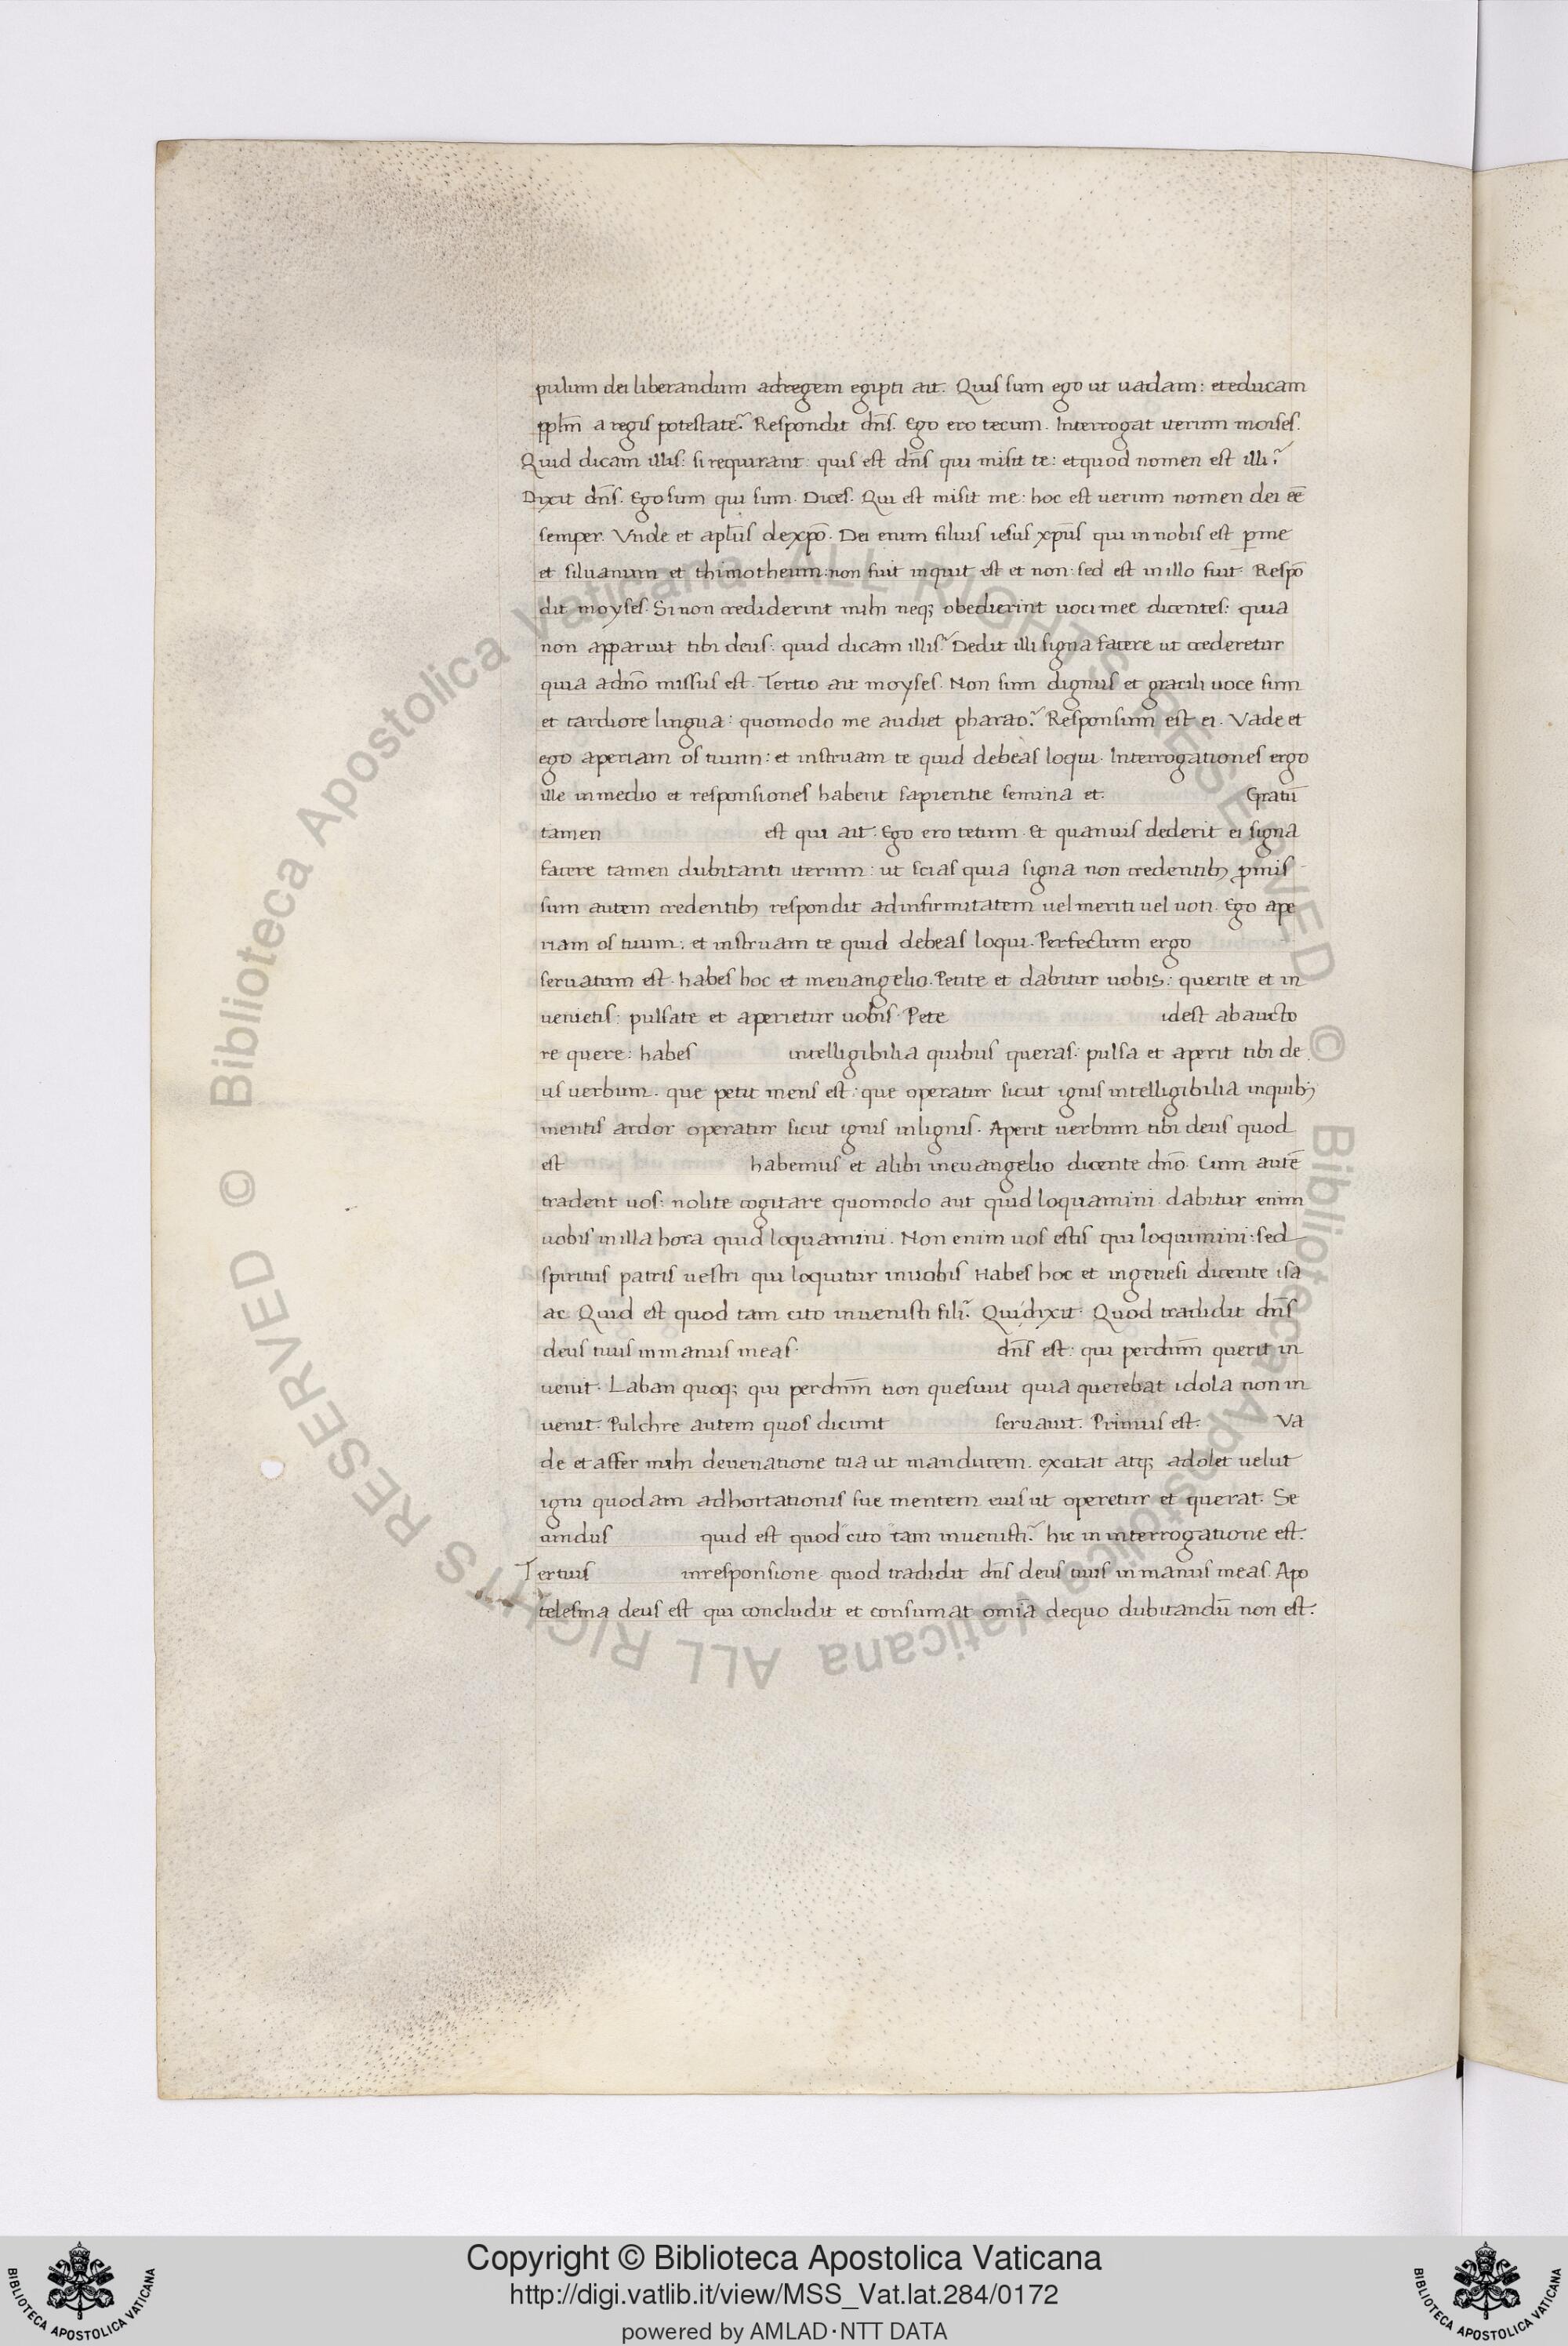 pulum dei liberandum ad regem egipti ait. Quis sum ego ut uadam: et educam
pplm̄ a regis potestate? Respondit dn̄s. Ego ero tecum. Interrogat iterum moises.
Quid dicam illis: si requirant: quis est dn̄s qui misit te: et quod nomen est illi?
Dixit dn̄s. Ego sum qui sum. Dices. Qui est misit me: hoc est uerum nomen dei eē
semper. Vnde et apl̄us de xpō. Dei enim filius iesus xpūs qui in nobis est ꝑ me
et siluanum et thimotheum: non fuit inquit est et non: sed est in illo fuit. Respō
dit moyses. Si non crediderint mihi neq; obedierint uoci mee dicentes: quia
non apparuit tibi deus: quid dicam illis? Dedit illi signa facere ut crederetur
quia a dnō missus est. Tertio ait moyses. Non sum dignus et gracili uoce sum
et tardiore lingua: quomodo me audiet pharao? Responsum est ei. Vade et
ego aperiam os tuum: et instruam te quid debeas loqui. Interrogationes ergo
ille in medio et responsiones habent sapientie semina et. Gratū
tamen est qui ait. Ego ero tecum. Et quanuis dederit ei signa
facere tamen dubitanti iterum: ut scias quia signa non credentib; ꝓmis
sum autem credentib; respondit ad infirmitatem uel meriti uel uoti. Ego ape
riam os tuum: et instruam te quid debeas loqui. Perfectum ergo
seruatum est. habes hoc et in euangelio. Petite et dabitur uobis: querite et in
uenietis: pulsate et aperietur uobis. Pete idest ab aucto
re quere: habes intelligibilia quibus queras: pulsa et aperit tibi de
us uerbum. que petit mens est: que operatur sicut ignis intelligibilia in quib;
mentis ardor operatur sicut ignis in lignis. Aperit uerbum tibi deus quod
est habemus et alibi in euangelio dicente dnō. Cum autē
tradent uos: nolite cogitare quomodo aut quid loquamini. dabitur enim
uobis in illa hora quid loquamini. Non enim uos estis qui loquimini: sed
spiritus patris uestri qui loquitur in uobis. Habes hoc et in genesi dicente isa
ac. Quid est quod tam cito inuenisti fili? Qui dixit. Quod tradidit dn̄s
deus tuus in manus meas. dn̄s est: qui per dnm̄ querit in
uenit. Laban quoq; qui per dnm̄ non quesiuit quia querebat idola non in
uenit. Pulchre autem quos dicunt seruauit. Primus est. Va
de et affer mihi de uenatione tua ut manducem. excitat atq; adolet uelut
igni quodam adhortationis sue mentem eius ut operetur et querat. Se
cundus quid est quod cito tam inuenisti? hic in interrogatione est.
Tertius in responsione quod tradidit dn̄s deus tuus in manus meas. Apo
telesma deus est qui concludit et consumat om̄ia de quo dubitandū non est.
Copyright © Biblioteca Apostolica Vaticana
http://digi.vatlib.it/view/MSS_Vat.lat.284/0172
powered by AMLAD·NTT DATA
BIBLIOTECA APOSTOLICA VATICANA
BIBLIOTECA APOSTOLICA VATICANA
© Biblioteca Apostolica Vaticana ALL RIGHTS RESERVED
© Biblioteca Apostolica Vaticana ALL RIGHTS RESERVED